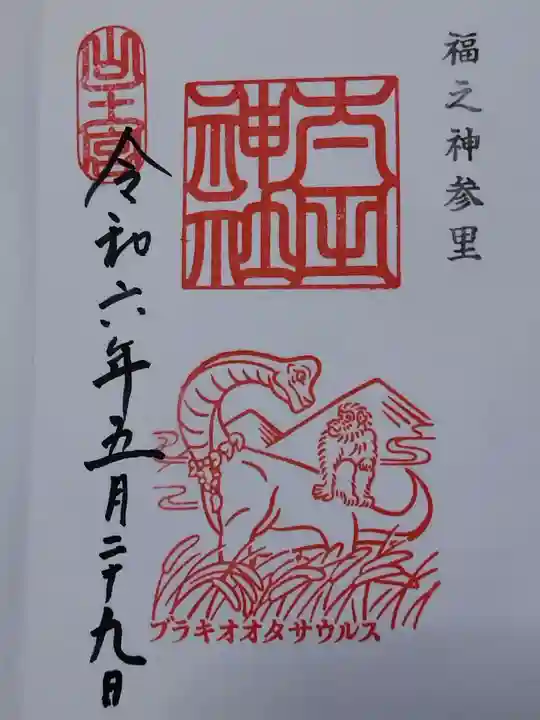 福之神参里
太平
神社
山王宮
令和六年五月二十九日
ブラキオオタサウルス